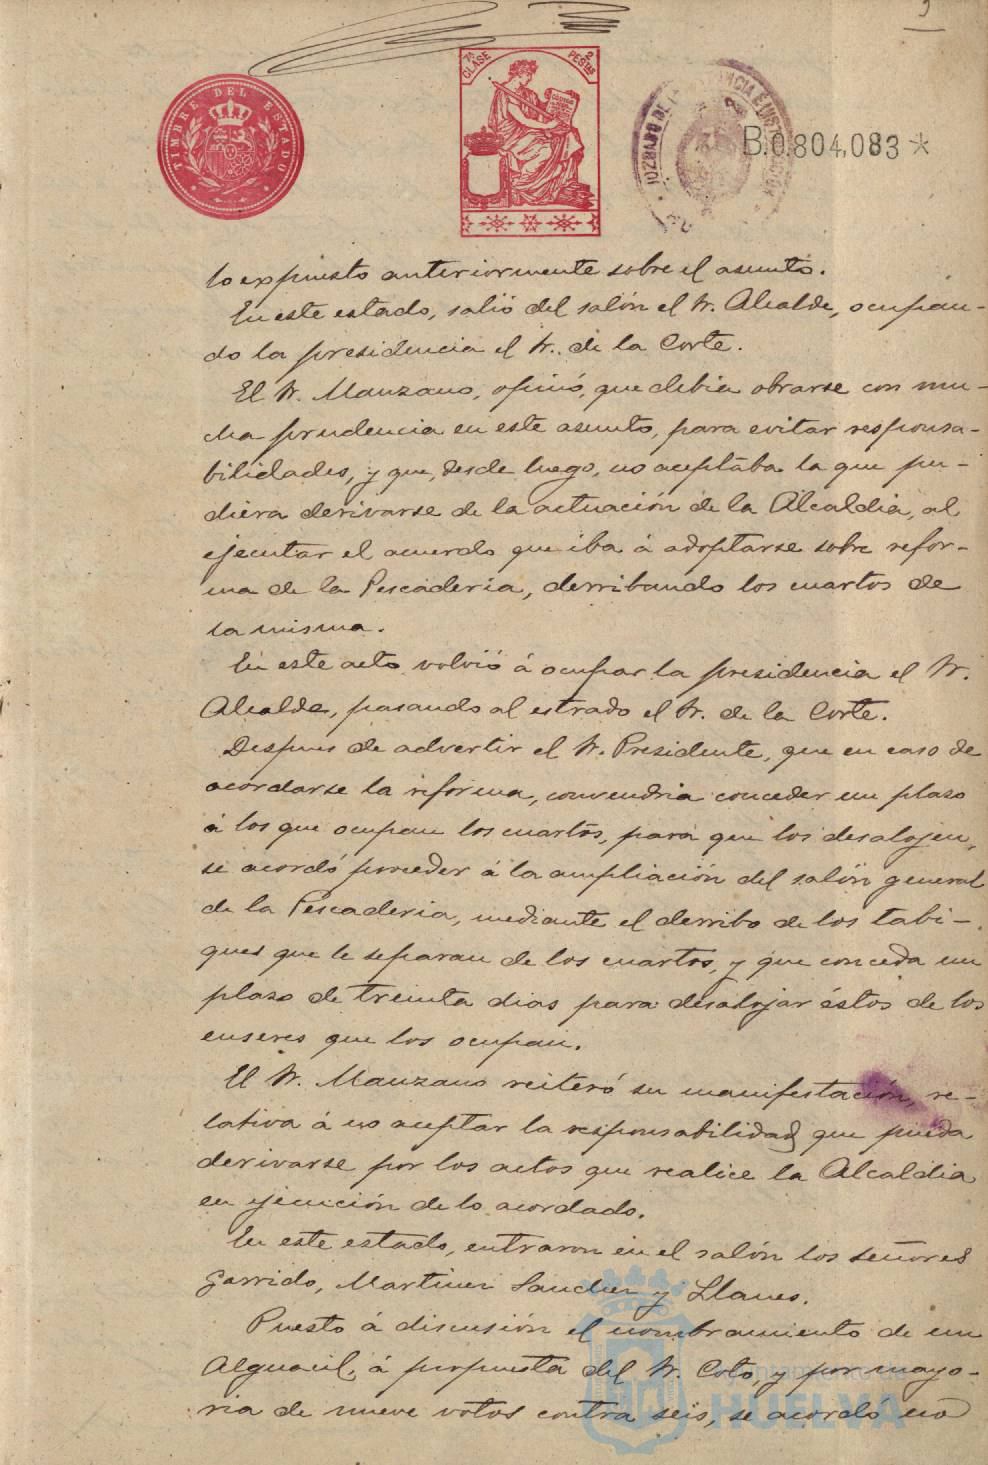 TIMBRE DEL ESTADO
7ª CLASE
2 PESTAS
JUZGADO DE
B.0.804,083 *
lo expuesto anteriormente sobre el asunto.
En este estado, salió del salón el Sr. Alcalde, ocupan-
do la presidencia el Sr. de la Corte.
El Sr. Manzano, opinó, que debia obrarse con mu-
cha prudencia en este asunto, para evitar responsa-
bilidades, y que, desde luego, no aceptaba la que pu-
diera derivarse de la actuación de la Alcaldia, al
ejecutar el acuerdo que iba á adoptarse sobre refor-
ma de la Pescaderia, derribando los cuartos de
la misma.
En este acto volvió á ocupar la presidencia el Sr.
Alcalde, pasando al estrado el Sr. de la Corte.
Despues de advertir el Sr. Presidente, que en caso de
acordarse la reforma, convendria conceder un plazo
á los que ocupan los cuartos, para que los desalojen,
se acordó proceder á la ampliación del salón general
de la Pescaderia, mediante el derribo de los tabi-
ques que le separan de los cuartos, y que conceda un
plazo de treinta dias para desalojar éstos de los
enseres que los ocupan.
El Sr. Manzano reiteró su manifestación, re-
lativa á no aceptar la responsabilidad que pueda
derivarse por los actos que realice la Alcaldia
en ejecución de lo acordado.
En este estado, entraron en el salón los señores
Garrido, Martinez Sanchez y Llanes.
Puesto á discusión el nombramiento de un
Alguacil, á propuesta del Sr. Coto, y por mayo-
ria de nueve votos contra seis, se acordó no
Ayuntamiento de
HUELVA